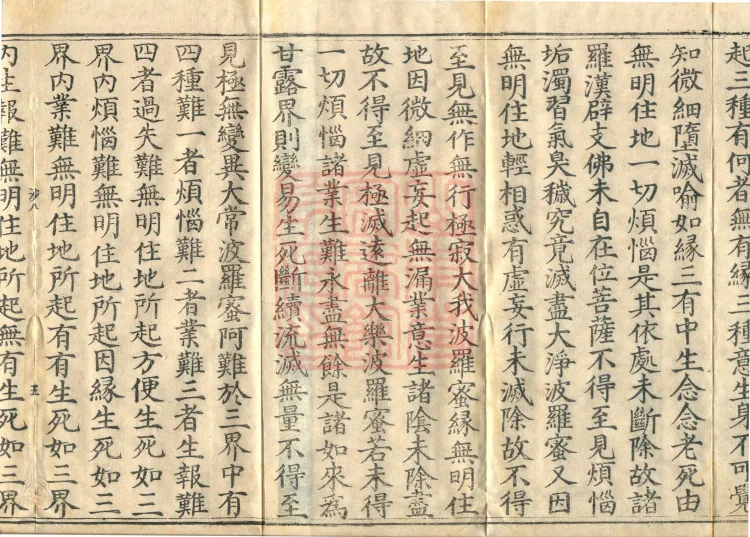 起三種有何者無有緣三種意生身不可覺
知微細墮滅喻如緣三有中生念念老死由
無明住地一切煩惱是其依處未斷除故諸
羅漢辟支佛未自在位菩薩不得至見煩惱
垢濁習氣臭穢究竟滅盡大淨波羅蜜又因
無明住地輕相惑有虛妄行未滅除故不得
至見無作無行極寂大我波羅蜜緣無明住
地因微細虛妄起無漏業意生諸陰未除盡
故不得至見極滅遠離大樂波羅蜜若未得
一切煩惱諸業生難永盡無餘是諸如來爲
甘露界則變易生死斷續流滅無量不得至
見極無變異大常波羅蜜阿難於三界中有
四種難一者煩惱難二者業難三者生報難
四者過失難無明住地所起方便生死如三
界內煩惱難無明住地所起因緣生死如三
界內業難無明住地所起有有生死如三界
沙八 五
內生報難無明住地所起無有生死如三界